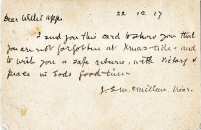 22 12 17
Dear Willet
I send you this card to show you that
you are not forgotten at Xmas-tide - and
to wish you a safe return, with victory &
peace in God's good time.
McMillan, Vicar.